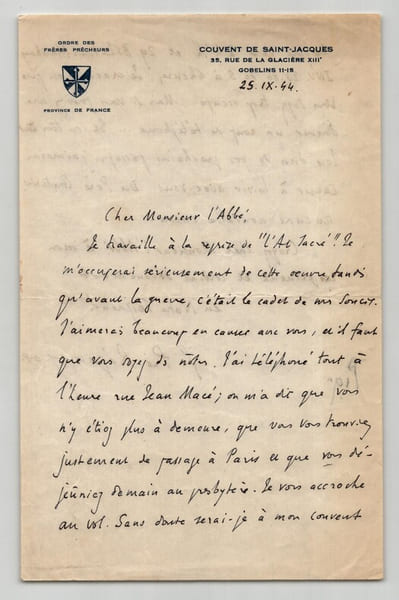 ORDRE DES
FRÈRES PRÊCHEURS
PROVINCE DE FRANCE
COUVENT DE SAINT-JACQUES
35, RUE DE LA GLACIÈRE XIIIᵉ
GOBELINS 11-15
25.IX.44.
Cher Monsieur l'Abbé,
Je travaille à la reprise de "l'Art Sacré". Je
m'occuperai sérieusement de cette œuvre, tandis
qu'avant la guerre, c'était le cadet de mes soucis.
J'aimerais beaucoup en causer avec vous, et il faut
que vous soyez des nôtres. J'ai téléphoné tout à
l'heure rue Jean Macé; on m'a dit que vous
n'y étiez plus à demeure, que vous vous trouviez
justement de passage à Paris et que vous dé-
jeûniez demain au presbytère. Je vous accroche
au vol. Sans doute serai-je à mon couvent